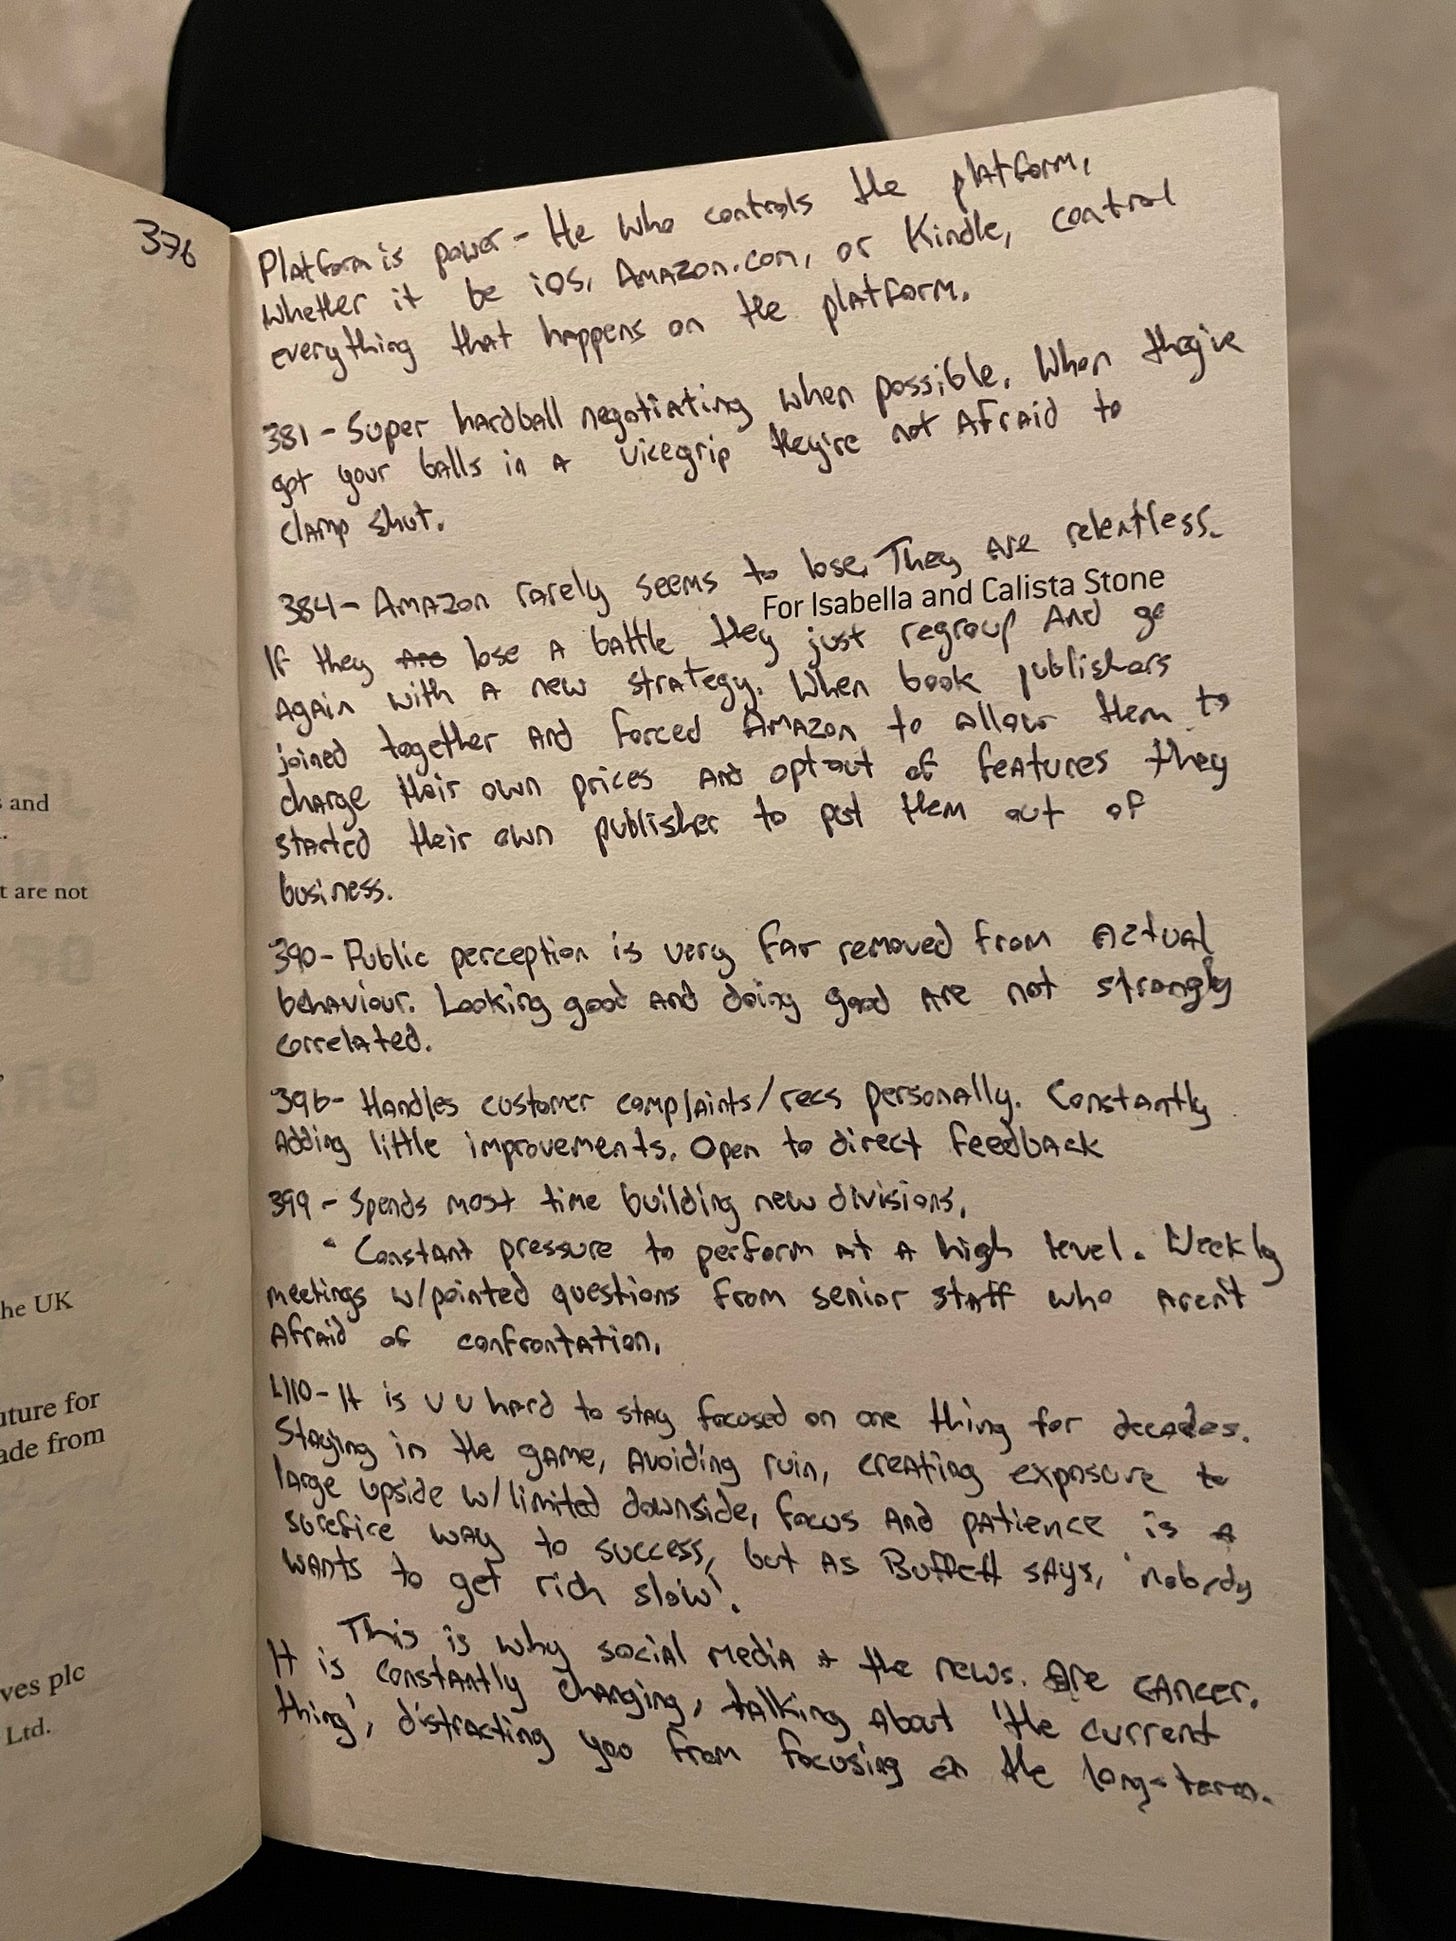 376
Platform is power - He who controls the platform,
whether it be iOS, Amazon.com, or Kindle, control
everything that happens on the platform.
381 - Super hardball negotiating when possible. When they've
got your balls in a vicegrip they're not afraid to
clamp shut.
384 - Amazon rarely seems to lose. They are relentless.
For Isabella and Calista Stone
If they are lose a battle they just regroup and go
again with a new strategy. When book publishers
joined together and forced Amazon to allow them to
charge their own prices and opt out of features they
started their own publisher to put them out of
business.
390 - Public perception is very far removed from actual
behaviour. Looking good and doing good are not strongly
correlated.
396 - Handles customer complaints/recs personally. Constantly
adding little improvements. Open to direct feedback
399 - Spends most time building new divisions.
Constant pressure to perform at a high level. Weekly
meetings w/pointed questions from senior staff who aren't
afraid of confrontation.
410 - It is v v hard to stay focused on one thing for decades.
Staying in the game, avoiding ruin, creating exposure to
large upside w/limited downside, focus and patience is a
surefire way to success, but as Buffett says, 'nobody
wants to get rich slow'.
This is why social media + the news. are cancer.
It is constantly changing, talking about 'the current
thing', distracting you from focusing on the long-term.
s and
t are not
he UK
uture for
ade from
ves plc
Ltd.